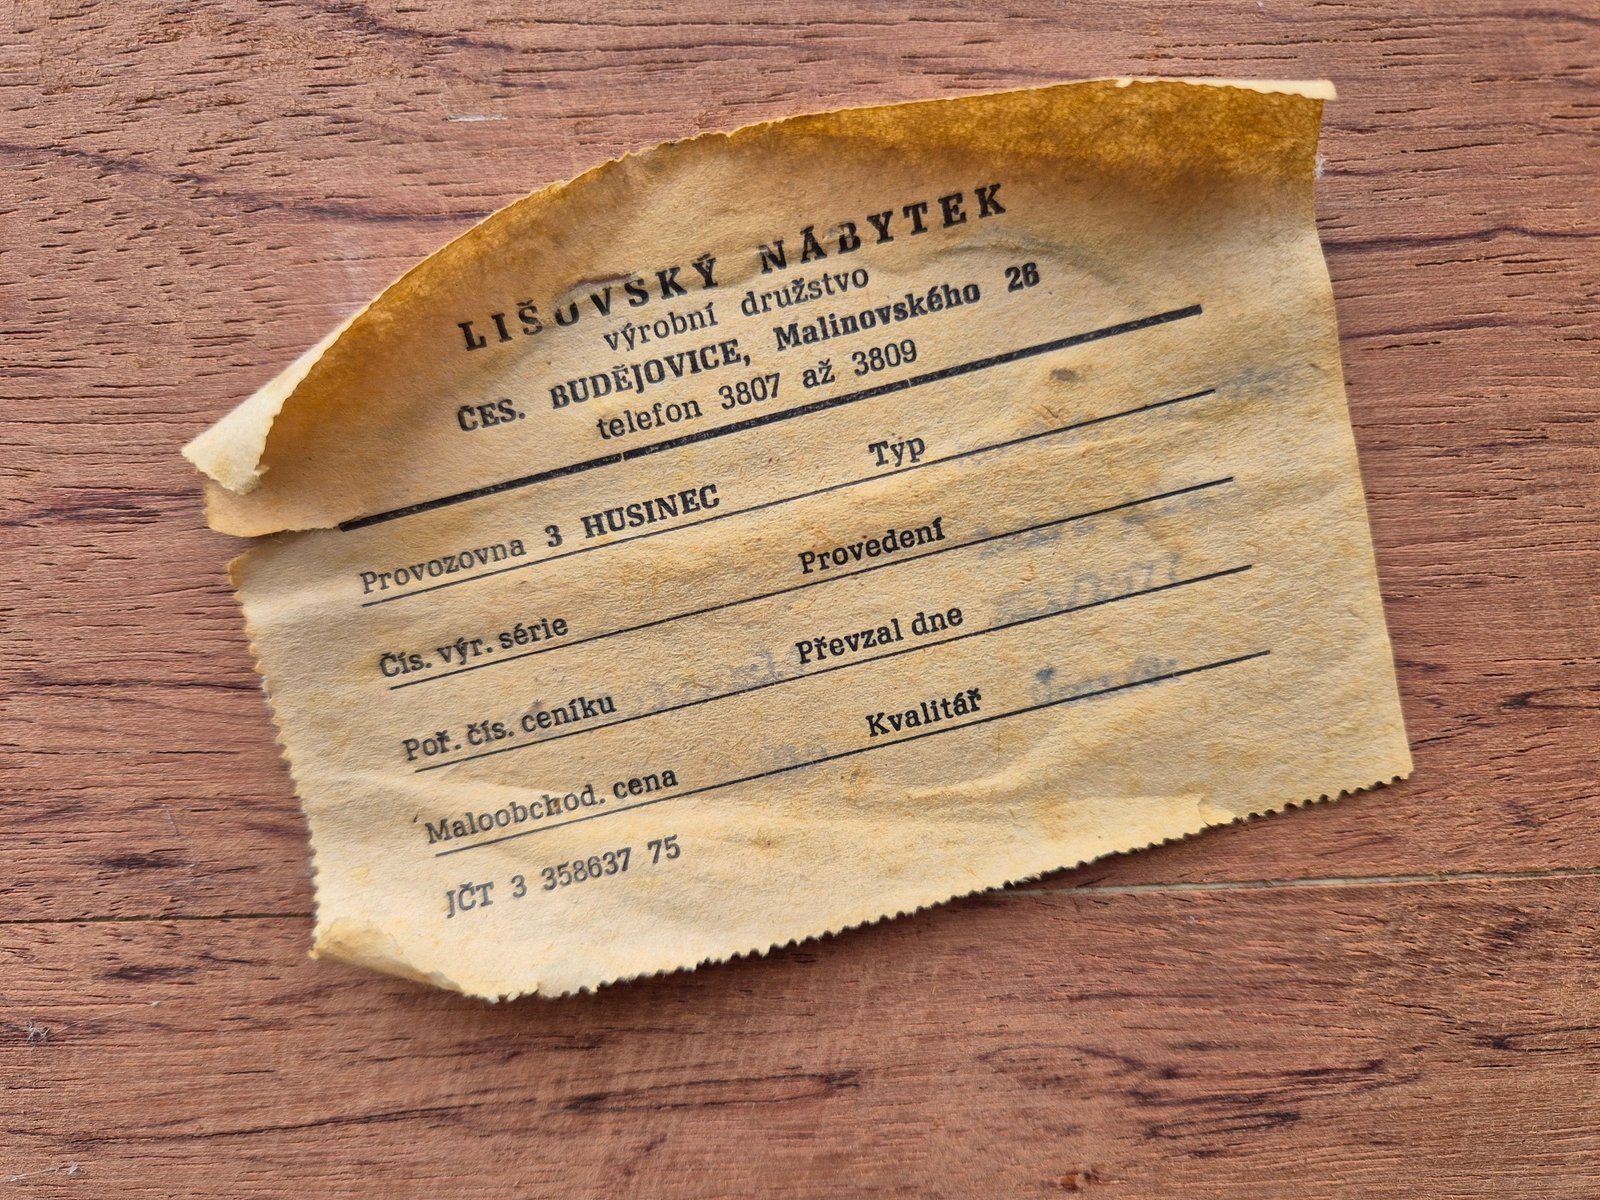 LIŠOVSKÝ NÁBYTEK
výrobní družstvo
ČES. BUDĚJOVICE, Malinovského 26
telefon 3807 až 3809
Provozovna 3 HUSINEC Typ
Čís. výr. série Provedení
Poř. čís. ceníku Převzal dne
Maloobchod. cena Kvalitář
JČT 3 358637 75